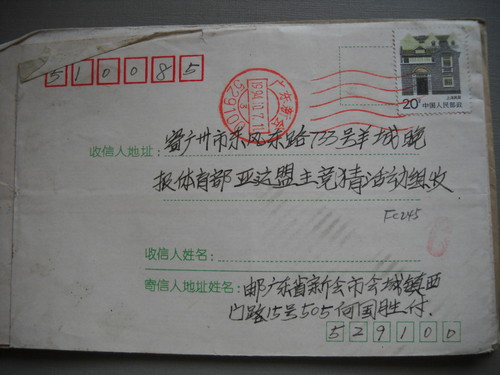 510085
广东新会
1994.10.7.11
529100
上海民居
20分 中国人民邮政
收信人地址: 寄广州市东风东路733号羊城晚
报体育部亚达盟主竞猜活动组收
FC245
收信人姓名:
寄信人地址姓名: 邮广东省新会市会城镇西
门路15号505何国胜付
529100